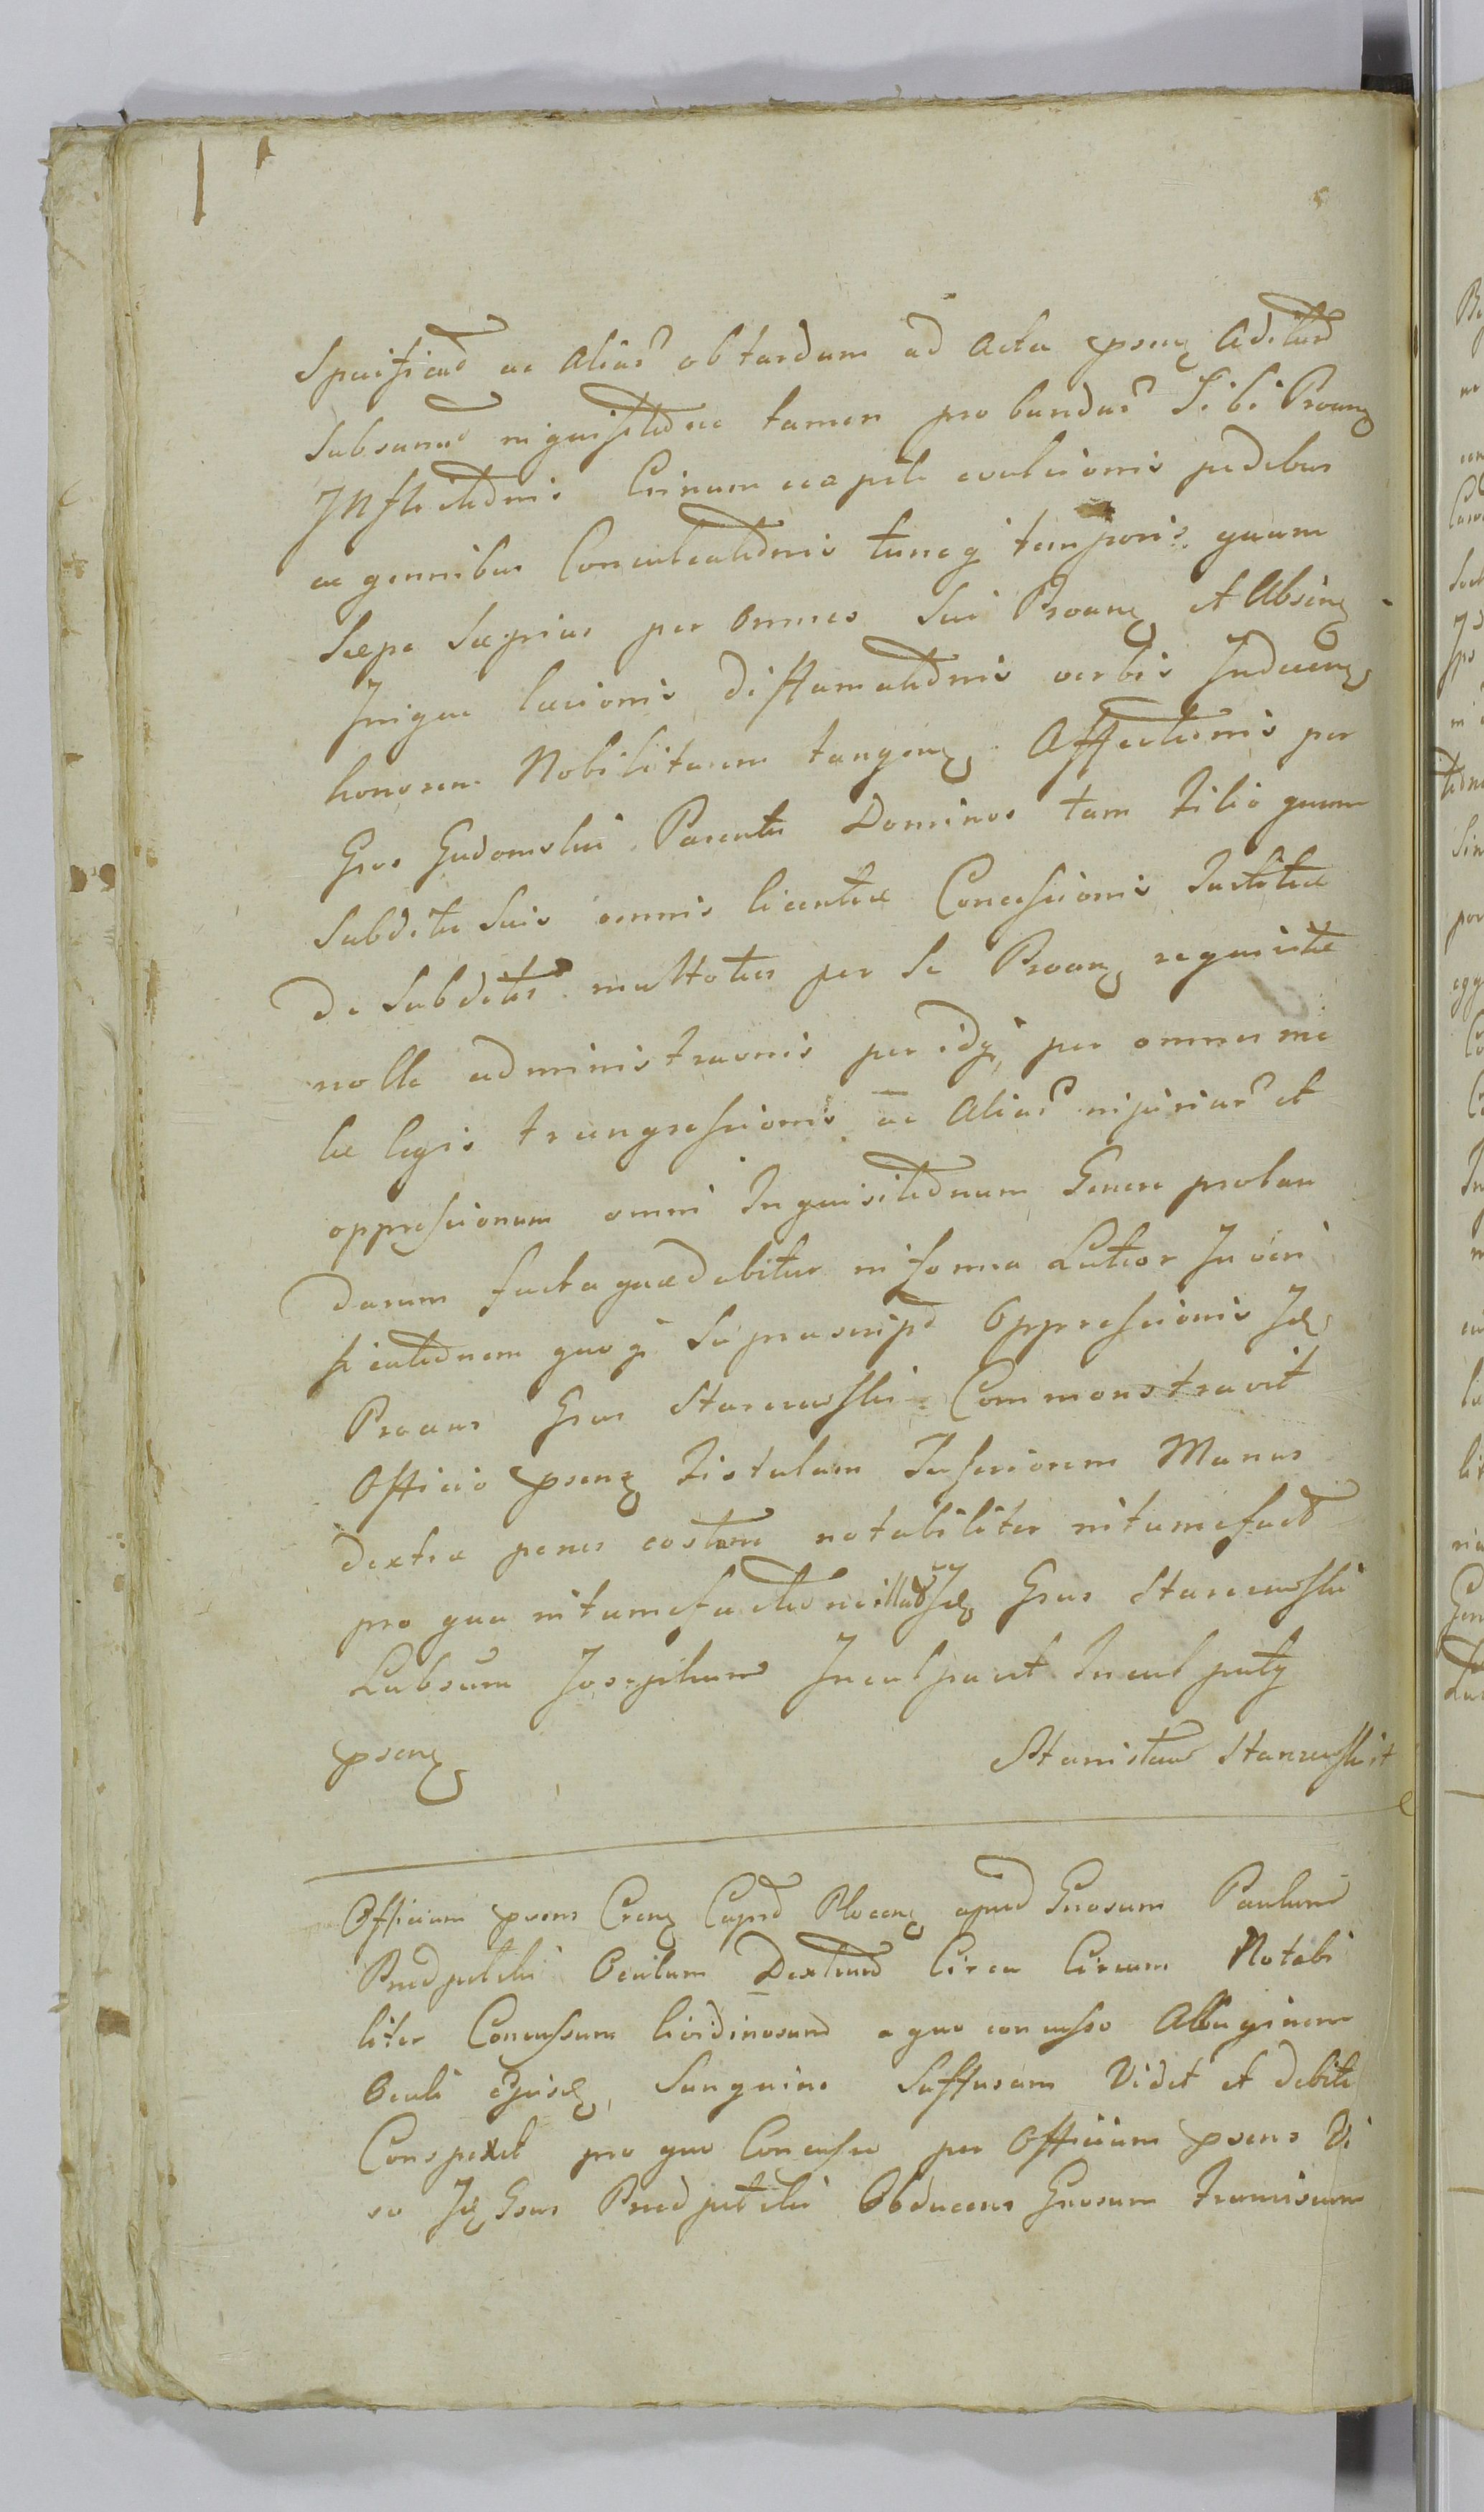 Specificat ac alias ob tardum ad Acta psenz Aditum
Subsanat inquisitione tamen probandas Sibi Proanz
Inflictionis Crinum e capite evulsionis pedibus
ac genubus Conculcationis tuncq temporis quam
Saepe Saepius per omnes Sui Proanz et Absenz
Inique laesionis diffamationis verbis Indecenz
honorem Nobilitarem tangenz Affectionis per
Gsos Gudomskie Parentes Dominos tam Filio quam
Subditis Suis omnis licentiae Concessionis Justitiae
De Subditis multoties per Se Proanz requisitae
nolle administraonis per idq per omnes me
tae legis transgressionis ac Alias injurias et
oppressionum omni Inquisitionum Genere proban
darum facta quae dabitur in forma Latior In veri
ficationem quoq Suprascript Oppressionis Id
Proans Gsus Starczewski Commonstravit
Officio psenz Fistulam Inferiorem Manus
dextrae penes costam notabiliter intumefact
pro qua intumefactione illat Idz Gsus Starczewski
Labsum Josephum Inculpavit Inculpatq
psenz Stanisław Starzewski
Officium psens Crenz Capt Plocenz apud Gnosum Paulum
Oculum Dextrum Circa Cirum Notabi
liter Concussum lividinosum a quo concusso Albuginem
Oculi ejusdz Sanguine Suffusam Vidit et debite
Conspexit pro quo Concusso per Officium psens Vi
so Idz Gsus Obducens Gnosum Franciscum